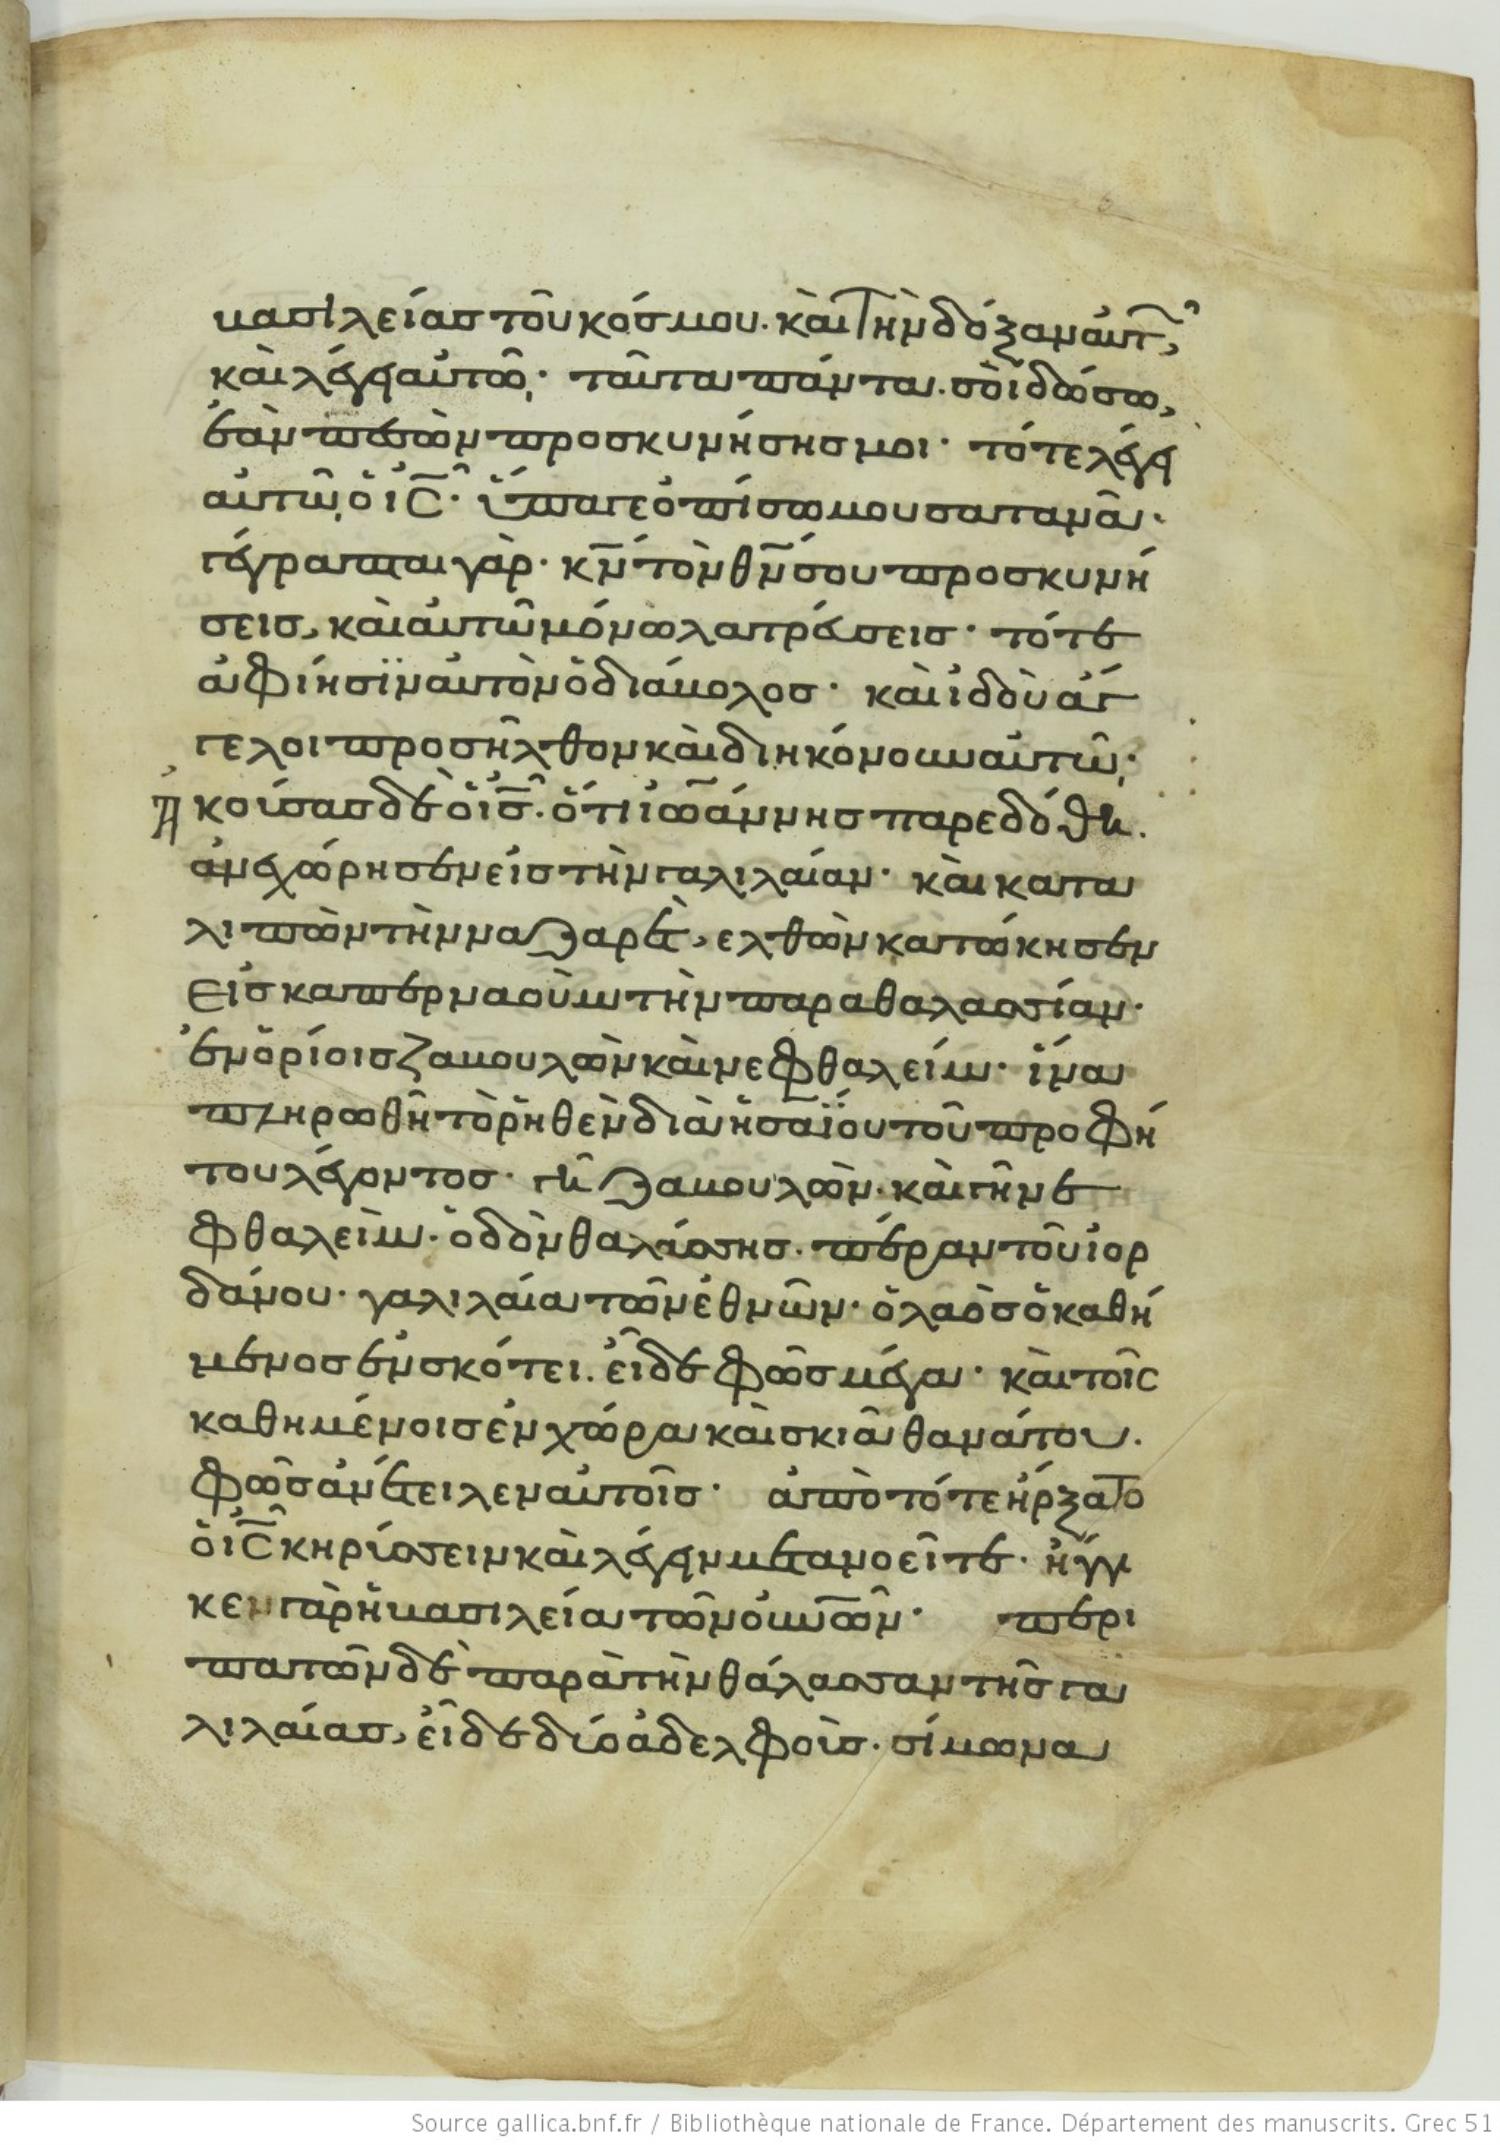 βασιλείας τοῦ κόσμου· καὶ τὴν δόξαν αὐτ(ῶν),
καὶ λέγει αὐτῷ· ταῦτα πάντα σοὶ δώσω,
ἐὰν πεσὼν προσκυνήσης μοι· τότε λέγει
αὐτῷ ὁ ις̅· ὕπαγε ὀπίσω μου σατανᾶ·
γέγραπται γὰρ· κν̅ τὸν θν̅ σου προσκυνή
σεις, καὶ αὐτῷ μόνω λατρεύσεις· τότε
ἀφίησϊν αὐτὸν ὁ διάβολος· καὶ ἰδοὺ ἄγ
γελοι προσῆλθον καὶ διηκόνουν αὐτῷ·
Ἀκούσας δὲ ὁ ις̅· ὅτι ἰωάννης παρεδόθη.
ἀνεχώρησεν εἰς τὴν γαλιλαίαν· καὶ κατα
λιπὼν τὴν ναζαρὲτ, ελθὼν κατώκησεν
εἰς καπερναοὺμ τὴν παραθαλασσίαν·
ἐν ὁρίοις ζαβουλὼν καὶ νεφθαλείμ· ἵνα
πληρωθῆ τὸ ῥηθὲν διὰ ἠσαΐου τοῦ προφή
του λέγοντος· γῆ ζαβουλὼν· καὶ γῆ νε
φθαλεὶμ· ὁδὸν θαλάσσης· πέραν τοῦ ἰορ
δάνου· γαλιλαία τῶν ἐθνῶν· ὁ λαὸς ὁ καθή
μενος ἐν σκότει. εἶδε φῶς μέγα· καὶ τοῖς
καθημένοις ἐν χώρα καὶ σκιᾶ θανάτου.
φῶς ἀνέτειλεν αὐτοῖς· ἀπὸ τότε ἤρξατο
ὁ ις̅ κηρύσσειν καὶ λέγειν μετανοεῖτε· ἤγγι
κεν γὰρ ἡ βασιλεία τῶν οὐνῶν· περι
πατῶν δὲ παρὰ τὴν θάλασσαν τῆς γα
λιλαίας, εἶδε δύο ἀδελφοὺς· σίμωνα
Source gallica.bnf.fr / Bibliothèque nationale de France. Département des manuscrits. Grec 51